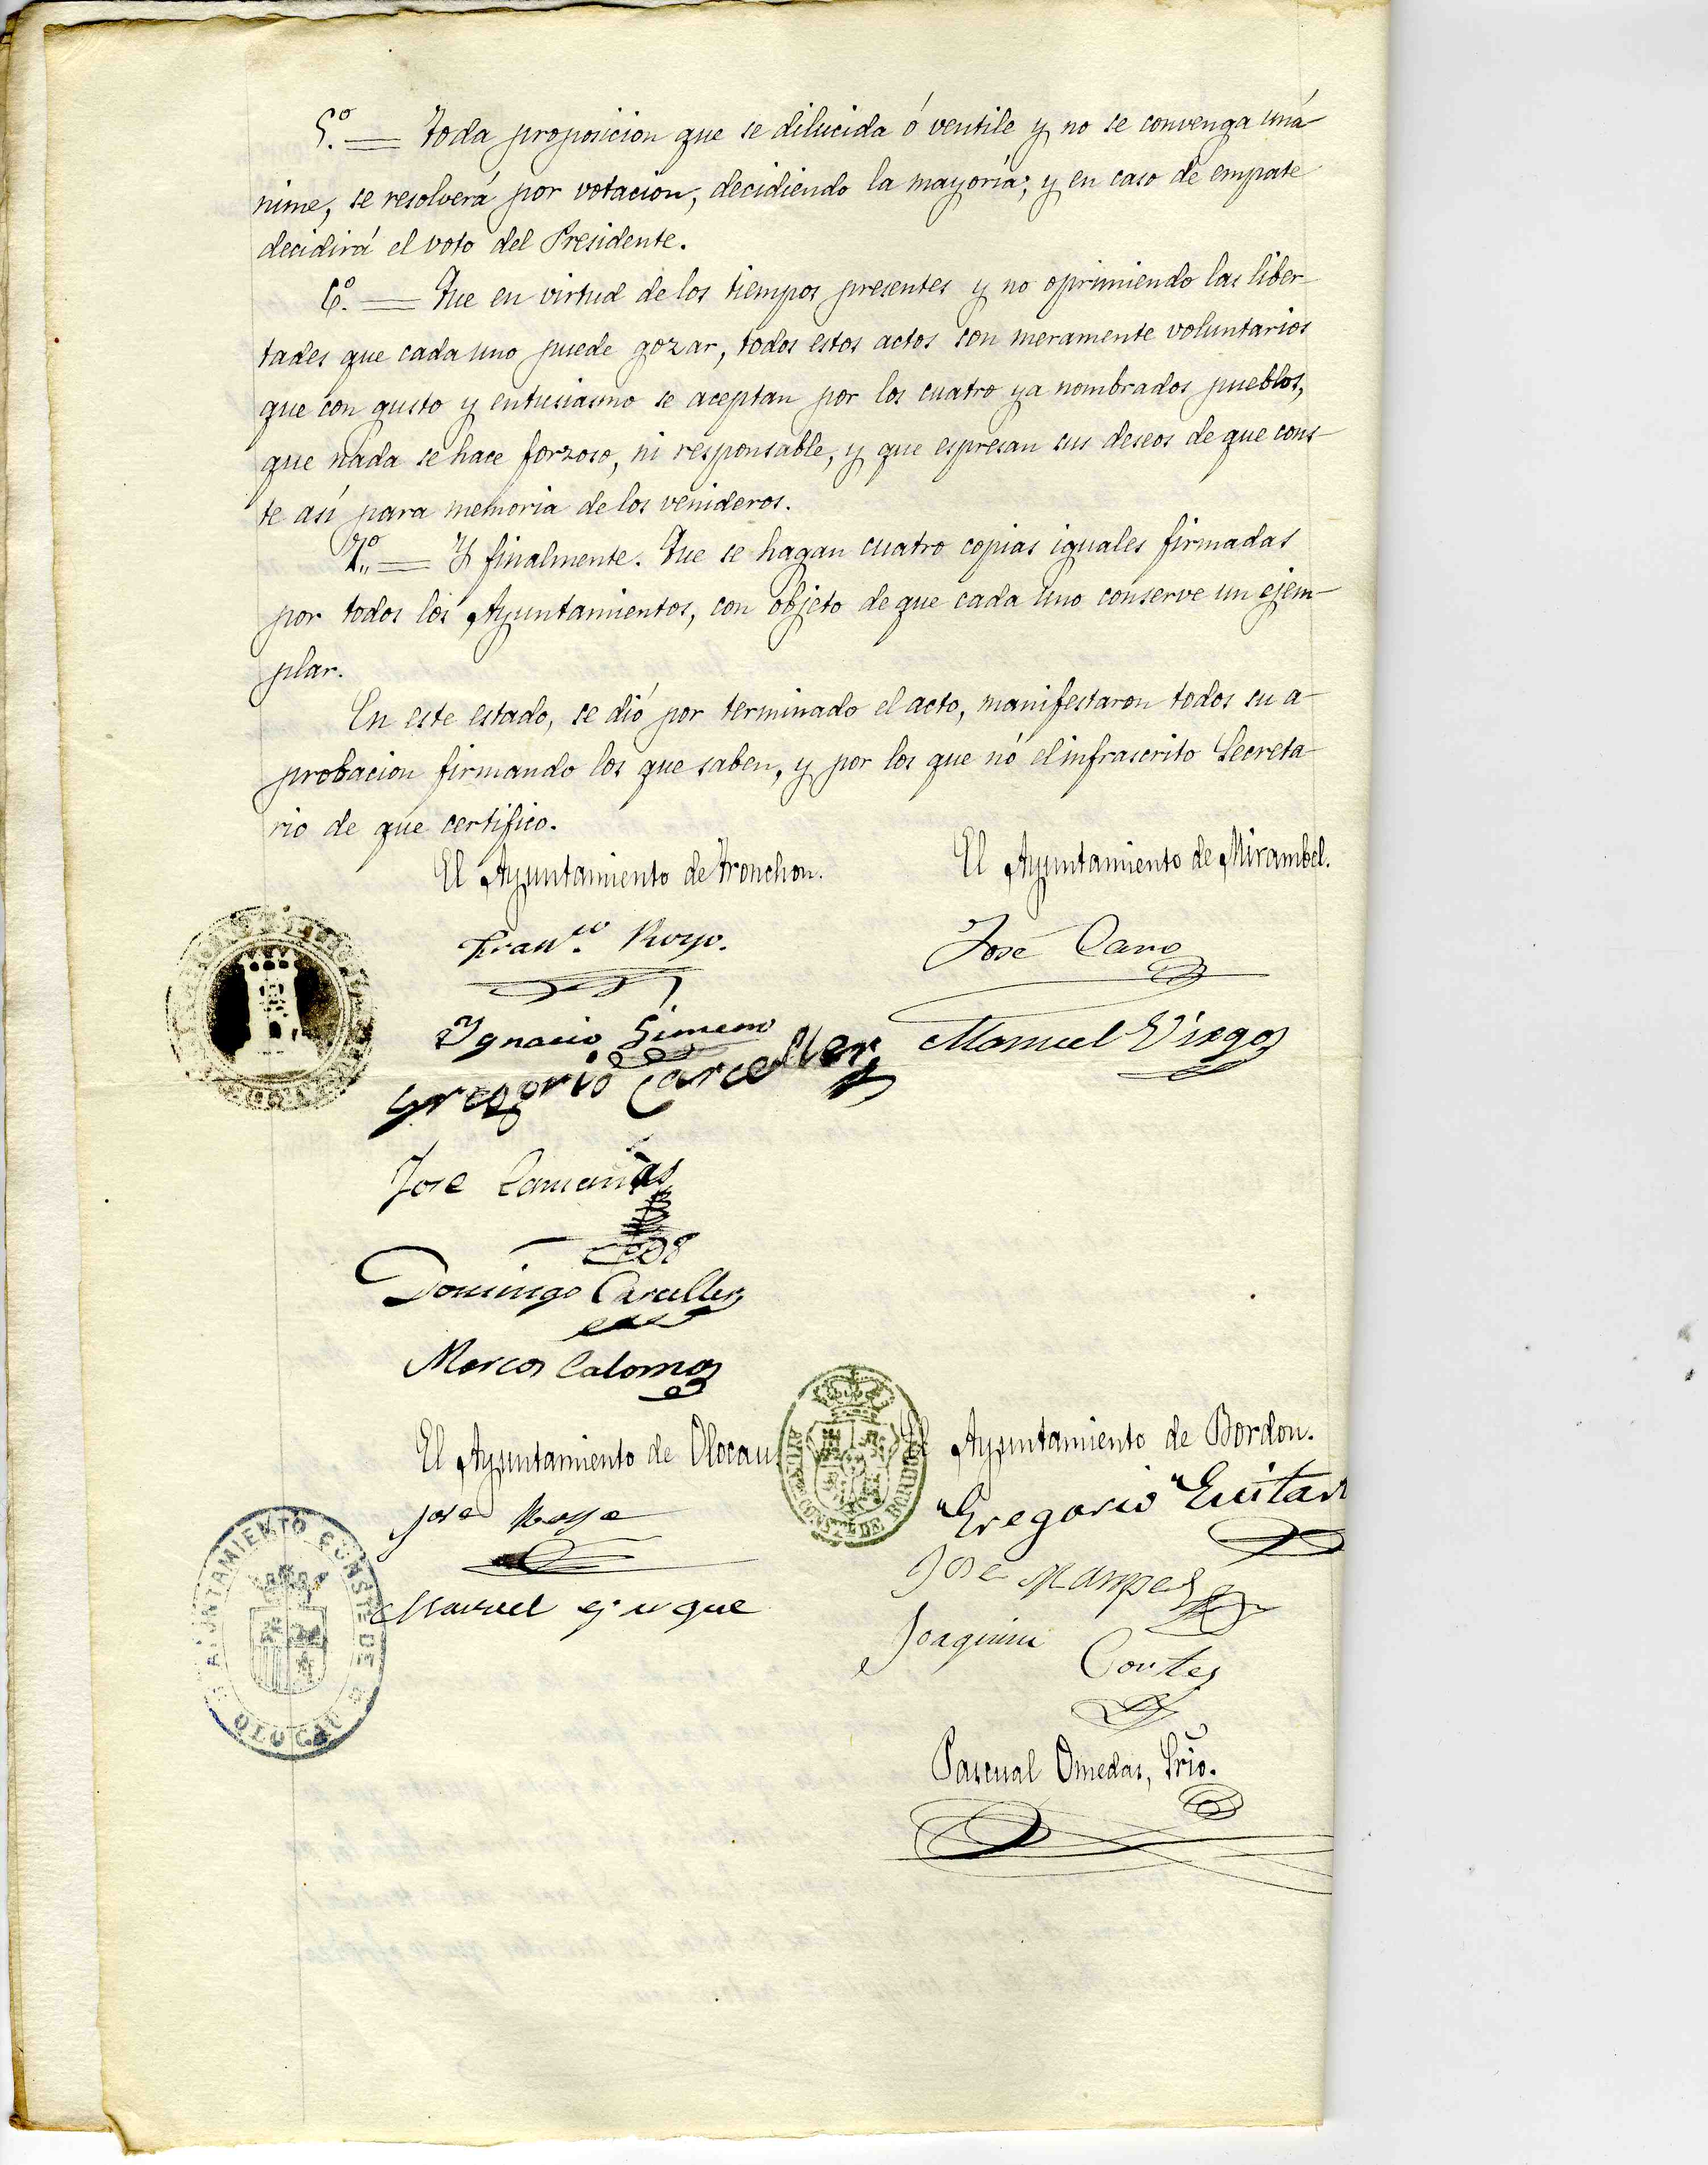 5.º = Toda proposicion que se dilucida ó ventile y no se convenga uná-
nime, se resolverá por votacion, decidiendo la mayoría; y en caso de empate
decidirá el voto del Presidente.
6.º = Que en virtud de los tiempos presentes y no oprimiendo las liber-
tades que cada uno puede gozar, todos estos actos son meramente voluntarios
que con gusto y entusiasmo se aceptan por los cuatro ya nombrados pueblos,
que nada se hace forzoso, ni responsable, y que espresan sus deseos de que cons-
te así para memoria de los venideros.
7.º = Y finalmente. Que se hagan cuatro copias iguales firmadas
por todos los Ayuntamientos, con objeto de que cada uno conserve un ejem-
plar.
En este estado, se dió por terminado el acto, manifestaron todos su a-
probacion firmando los que saben, y por los que nó el infrascrito Secreta-
rio de que certifico.
El Ayuntamiento de Tronchon.
El Ayuntamiento de Mirambel.
Fran.co Royo.
José Caro
Ygnacio Gimeno
Manuel
Gregorio Carceller
Jose
Domingo Carceller
Marcos Calomar
El Ayuntamiento de Olocau
El Ayuntamiento de Bordon.
AYUNTAMIENTO CONST. DE BORDON
Jose
Gregorio Guitart
AYUNTAMIENTO CONSTL DE OLOCAU
Jose
Manuel
Joaquin
Cortes
Pascual Omedas, Srio.